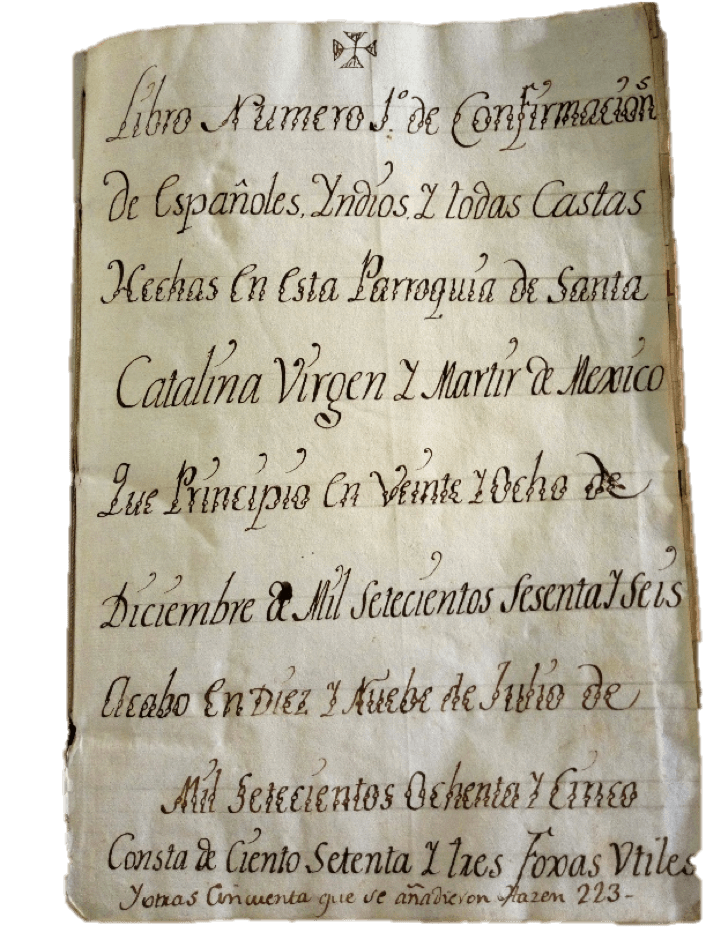 Libro Numero 1.º de Confirmación
De Españoles, Yndios, Y todas Castas
Hechas En Esta Parroquia de Santa
Catalina Virgen Y Martir de Mexico
Que Principio En Veinte Y Ocho de
Diciembre de Mil Setecientos Sesenta Y Seis
Acabo En Diez Y Nuebe de Julio de
Mil Setecientos Ochenta Y Cinco
Consta de Ciento Setenta Y tres Foxas Vtiles
Y otras Cincuenta que se añadieron hazen 223-